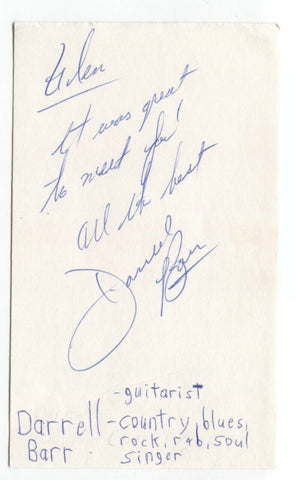 Helen
It was great
to meet you!
All the best
Darrell
Barr
-guitarist
Darrell -country, blues,
Barr rock, r&b, soul
singer